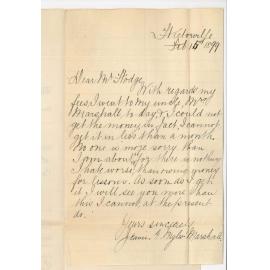 Victorville
Feb 15th 1899
Dear Mr Hodge,
With regards my
fees, I went to my uncle, Mr
Marshall to day, & I could not
get the money, in fact, I cannot
get it in less than a month.
No one is more sorry than
I am about it, for there is nothing
I hate worse, than owing money
for lessons. As soon as I get
it, I will see you more than
this I cannot at the present
do.
Yours sincerely
Marshall